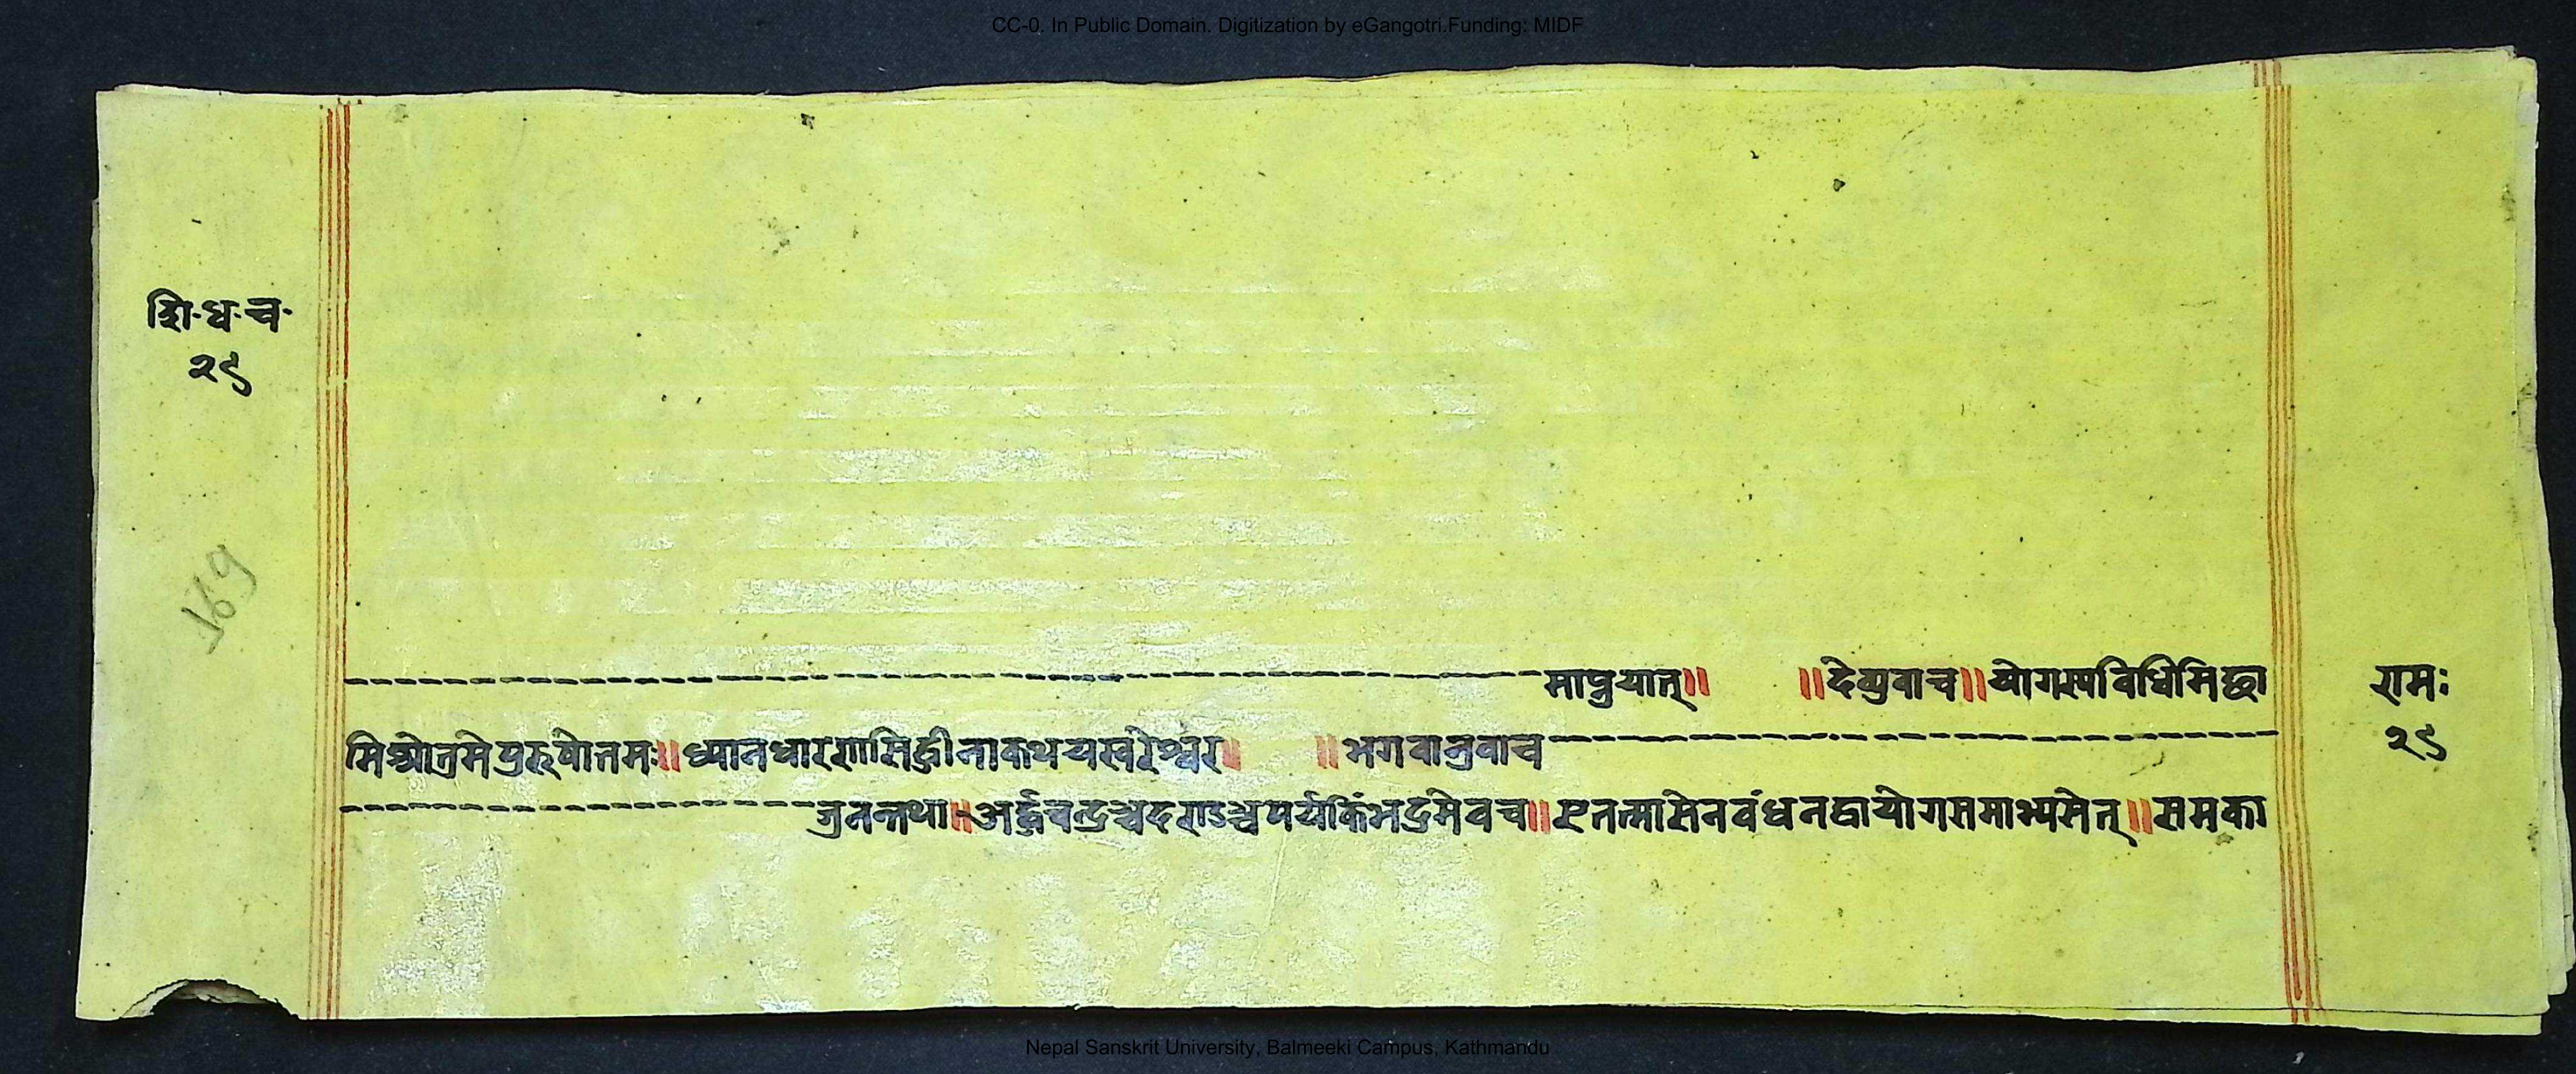 CC-0. In Public Domain. Digitization by eGangotri.Funding: MIDF
शि·ध·च·
२९
169
माप्नुयात्॥ ॥देव्युवाच॥योगस्यविधिमिद्धा
मिश्रोत्रमेपुरुषोत्तमः॥ध्यानधारणासिद्धीनाकथयस्वरेश्वर॥ ॥भगवानुवाच
ज्रनन्तथा॥अर्द्धचन्द्रञ्चदण्डञ्चपर्यकिंभद्रमेवच॥एतत्मासेनवंधनद्वायोगसमाभ्यसेत्॥समका
रामः
२९
Nepal Sanskrit University, Balmeeki Campus, Kathmandu